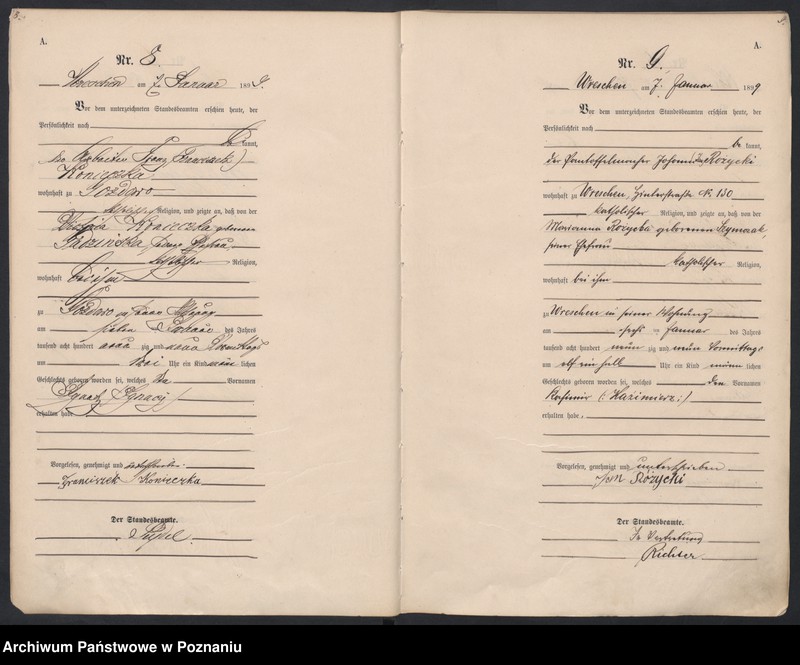 A.
Nr. 8.
Wreschen am 7. Januar 1899.
Vor dem unterzeichneten Standesbeamten erschien heute, der
Persönlichkeit nach
kannt,
der Arbeiter Franz
Konieczka
wohnhaft zu
Religion, und zeigte an, daß von der
Konieczka geborenen
seiner Ehefrau
katholischer Religion,
wohnhaft bei ihm
zu
am sieben Januar des Jahres
tausend acht hundert neun zig und neun
um Uhr ein Kind männlichen
Geschlechts geboren worden sei, welches den Vornamen
Ignatz Ignacy
erhalten habe
Vorgelesen, genehmigt und unterschrieben
Franciszek Konieczka
Der Standesbeamte.
A.
Nr. 9.
Wreschen am 7. Januar 1899
Vor dem unterzeichneten Standesbeamten erschien heute, der
Persönlichkeit nach
be kannt,
der Pantoffelmacher Johann Rożycki
wohnhaft zu Wreschen, Hinterstraße No 130
katholischer Religion, und zeigte an, daß von der
Marianna Rożycka geborenen Szymczak,
seiner Ehefrau
katholischer Religion,
wohnhaft bei ihm
zu Wreschen in seiner Wohnung
am sechs Januar des Jahres
tausend acht hundert neun zig und neun Vormittags
um elf ein halb Uhr ein Kind männlichen
Geschlechts geboren worden sei, welches den Vornamen
Kasimir (: Kazimierz :)
erhalten habe.
Vorgelesen, genehmigt und unterschrieben
Jan Różycki
Der Standesbeamte.
In Vertretung
Richter
Archiwum Państwowe w Poznaniu